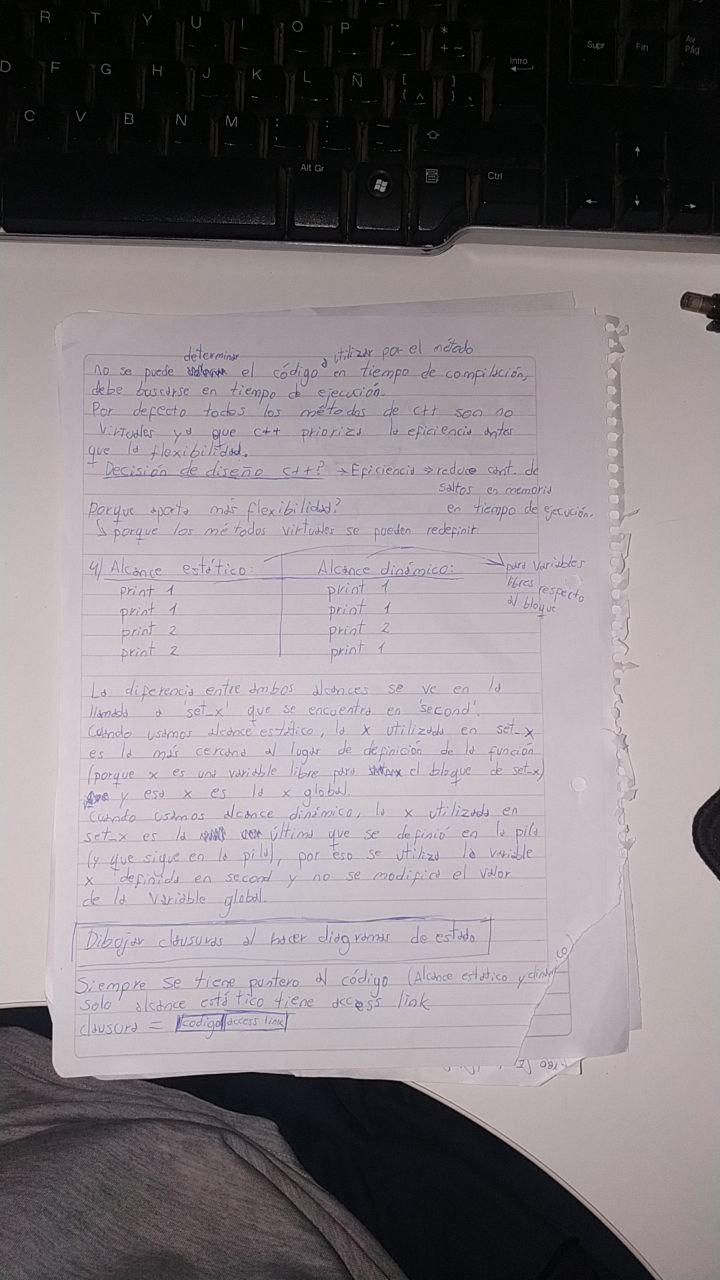 R T Y U I O P
* + ~
Supr Fin Av Pág
D F G H J K L Ñ [ { ^ ] }
Intro
C V B N M ; : ⇧
Alt Gr Ctrl
↑
← ↓ →
determinar a utilizar por el método
no se puede el código en tiempo de compilación,
debe buscarse en tiempo de ejecución.
Por defecto todos los métodos de C++ son no
virtuales ya que C++ prioriza la eficiencia antes
que la flexibilidad.
Decisión de diseño C++? → Eficiencia → reduce cant. de
saltos en memoria
en tiempo de ejecución.
Porque aporta más flexibilidad?
↳ porque los métodos virtuales se pueden redefinir
4) Alcance estático: Alcance dinámico: → para variables
libres respecto
al bloque
print 1 print 1
print 1 print 1
print 2 print 2
print 2 print 1
La diferencia entre ambos alcances se ve en la
llamada a 'set_x' que se encuentra en 'second'.
Cuando usamos alcance estático, la x utilizada en set_x
es la más cercana al lugar de definición de la función
(porque x es una variable libre para el bloque de set_x)
y esa x es la x global.
Cuando usamos alcance dinámico, la x utilizada en
set_x es la última que se definió en la pila
(y que sigue en la pila), por eso se utiliza la variable
x definida en second y no se modifica el valor
de la variable global.
Dibujar clausuras al hacer diagramas de estado
Siempre se tiene puntero al código (Alcance estático y
solo alcance estático tiene access link
clausura = codigo access link